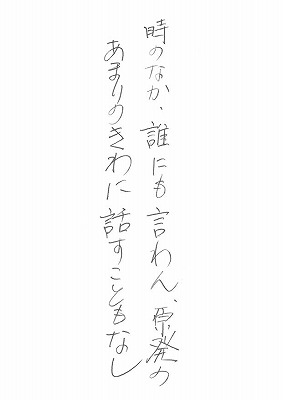 時のなか、誰にも言わん、原発の
あまりのきわに話すこともなし